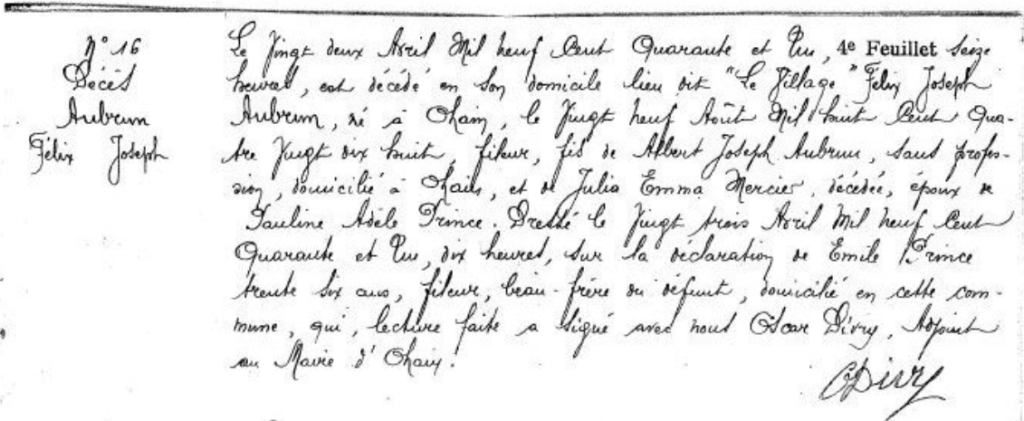 N° 16
Décès
Aubrun
Félix Joseph
Le Vingt deux Avril Mil neuf Cent Quarante et Un, 4e Feuillet seize
heures, est décédé en son domicile lieu dit "Le Village" Félix Joseph
Aubrun, né à Ohain, le Vingt neuf Août Mil huit Cent Qua-
tre Vingt dix huit, fileur, fils de Albert Joseph Aubrun, sans profes-
sion, domicilié à Ohain, et de Julia Emma Mercier, décédée, époux de
Pauline Adèle Prince. Dressé le Vingt trois Avril Mil neuf Cent
Quarante et Un, dix heures, sur la déclaration de Emile Prince
trente six ans, fileur, beau-frère du défunt, domicilié en cette com-
mune, qui, lecture faite a signé avec nous Oscar Divry, Adjoint
au Maire d'Ohain.
ODivry